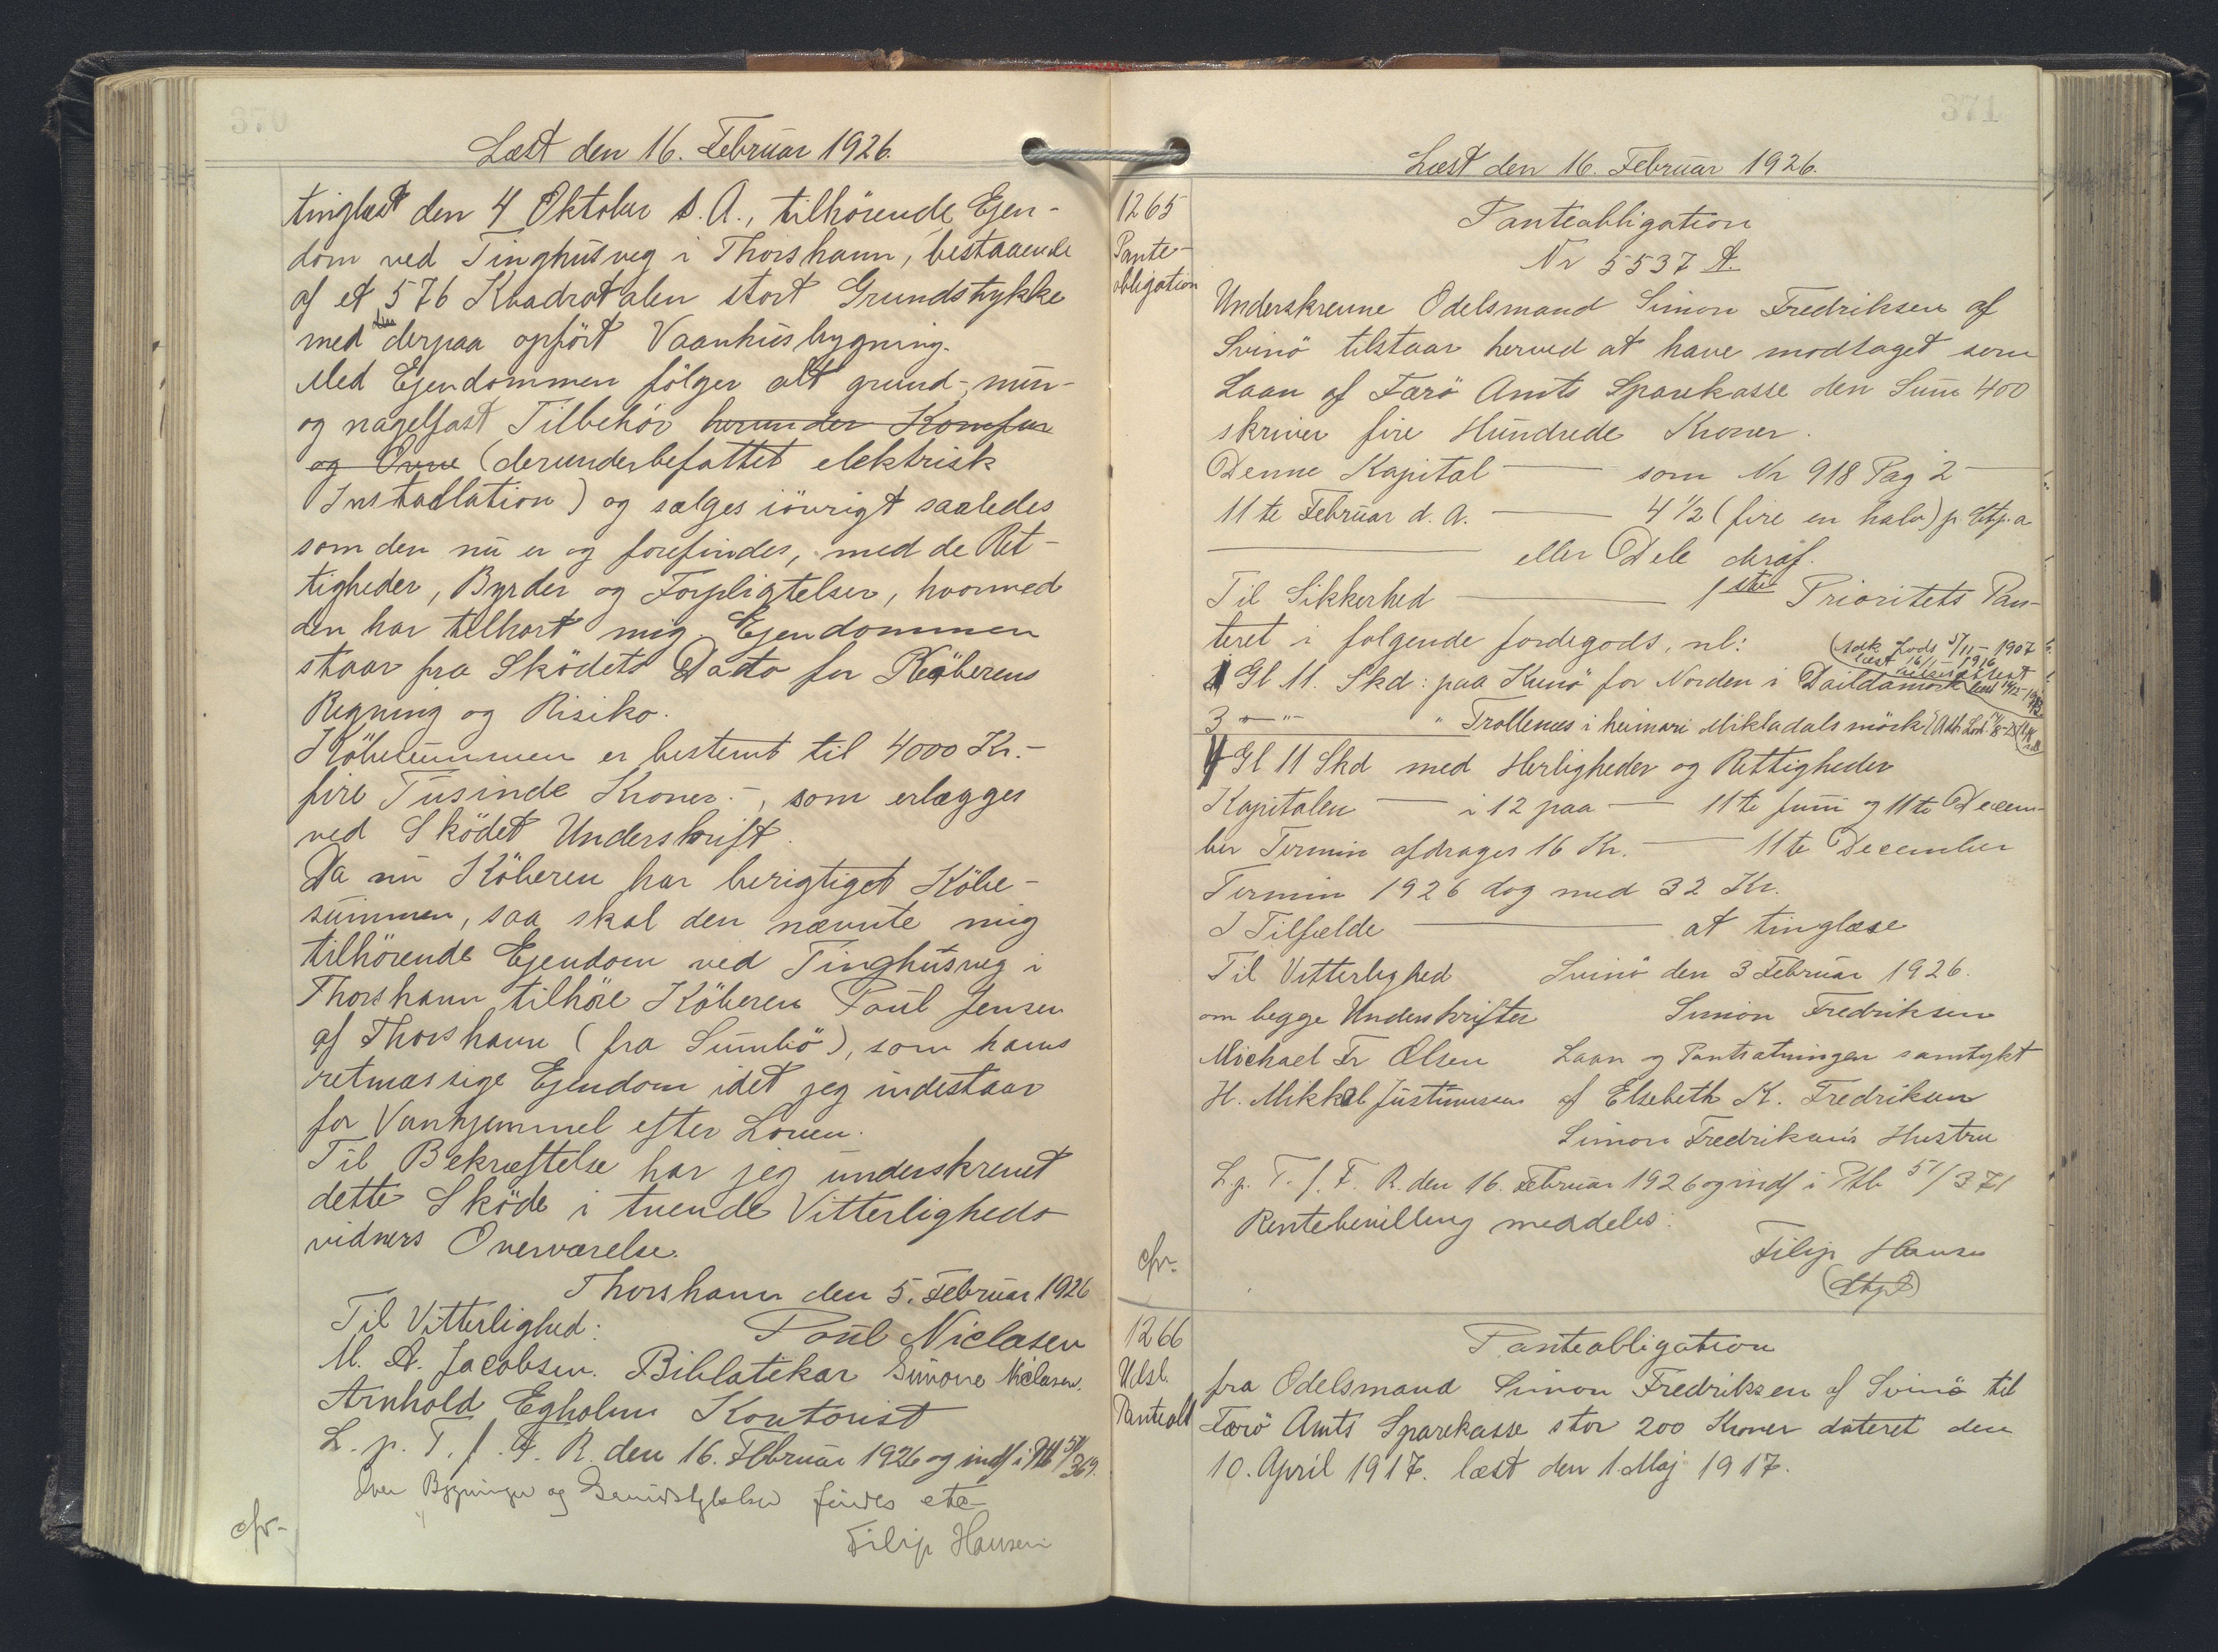 370
Læst den 16. Februar 1926.
tinglæst den 4 Oktober s. A., tilhörende Ejen-
dom ved Tinghusveg i Thorshavn, bestaaende
af et 576 Kvadratalen stort Grundstykke
med den derpaa opfört Vaanhusbygning.
Med Ejendommen fölger alt grund-, mur-
og nagelfast Tilbehör herunder Komfur
og Ovne (derunder befattet elektrisk
Installation) og sælges iövrigt saaledes
som den nu er og forefindes, med de Ret-
tigheder, Byrder og Forpligtelser, hvormed
den har tilhørt mig. Ejendommen
staar fra Sködets Dato for Köberens
Regning og Risiko.
Köbesummen er bestemt til 4000 Kr.-
fire Tusinde Kroner.-, som erlægges
ved Sködet Underskrift.
Da nu Köberen har berigtiget Köbe-
summen, saa skal den nævnte mig
tilhörende Ejendom ved Tinghusveg i
Thorshavn tilhöre Köberen Poul Jensen
af Thorshavn (fra Sumbö), som hans
retmæssige Ejendom idet jeg indestaar
for Vanhjemmel efter Loven.
Til Bekræftelse har jeg underskrevet
dette Sköde i tvende Vitterligheds
vidners Overværelse.
Thorshavn den 5. Februar 1926
Til Vitterlighed: Poul Niclasen
M. A. Jacobsen. Biblotekar Simone Niclasen.
Arnhold Egholm Kontorist
L. p. T. f. F. R. den 16. Februar 1926 og indf i Ptb 51/369.
Over Bygninger og findes etc-
cfr- Filip Hansen
371
Læst den 16. Februar 1926.
1265
Pante-
obligation
Panteobligation
Nr 5537 A.
Underskrevne Odelsmand Simon Fredriksen af
Svinö tilstaar herved at have modtaget som
Laan af Færö Amts Sparekasse den Sum 400
skriver fire Hundrede Kroner.
Denne Kapital — som Nr 918 Pag 2 —
11te Februar d. A. — 4 1/2 (fire en halv) p. Ct p. a
— eller Dele deraf.
Til Sikkerhed — 1ste Prioritets Pan-
teret i følgende Jordegods, nl:
Lods 5/11 - 1907
læst 16/1 - 1916
1 Gl 11. Skd: paa Kunö for Norden i
3 - " - " Trollenes i heimari Mikladals mörk
4 Gl 11 Skd med Herligheder og Rettigheder
Kapitalen — i 12 paa — 11te Juni og 11te Decem-
ber Termin afdrages 16 Kr. — 11te December
Termin 1926 dog med 32 Kr.
I Tilfælde — at tinglæse
Til Vitterlighed Svinö den 3 Februar 1926.
om begge Underskrifter Simon Fredriksen
Michael Fr Olsen Laan og Pantsætningen samtykt
H. Mikkal Justinussen af Elsebeth K. Fredriksen
Simon Fredriksen's Hustru
L. p. T. f. F. R. den 16. Februar 1926 og indf i Ptb 51/371
Rentebevilling meddeles:
cfr- Filip Hansen
1266
Udsl.
Panteobl
Panteobligation
fra Odelsmand Simon Fredriksen af Svinö til
Færö Amts Sparekasse stor 200 Kroner dateret den
10. April 1917. læst den 1. Maj 1917.